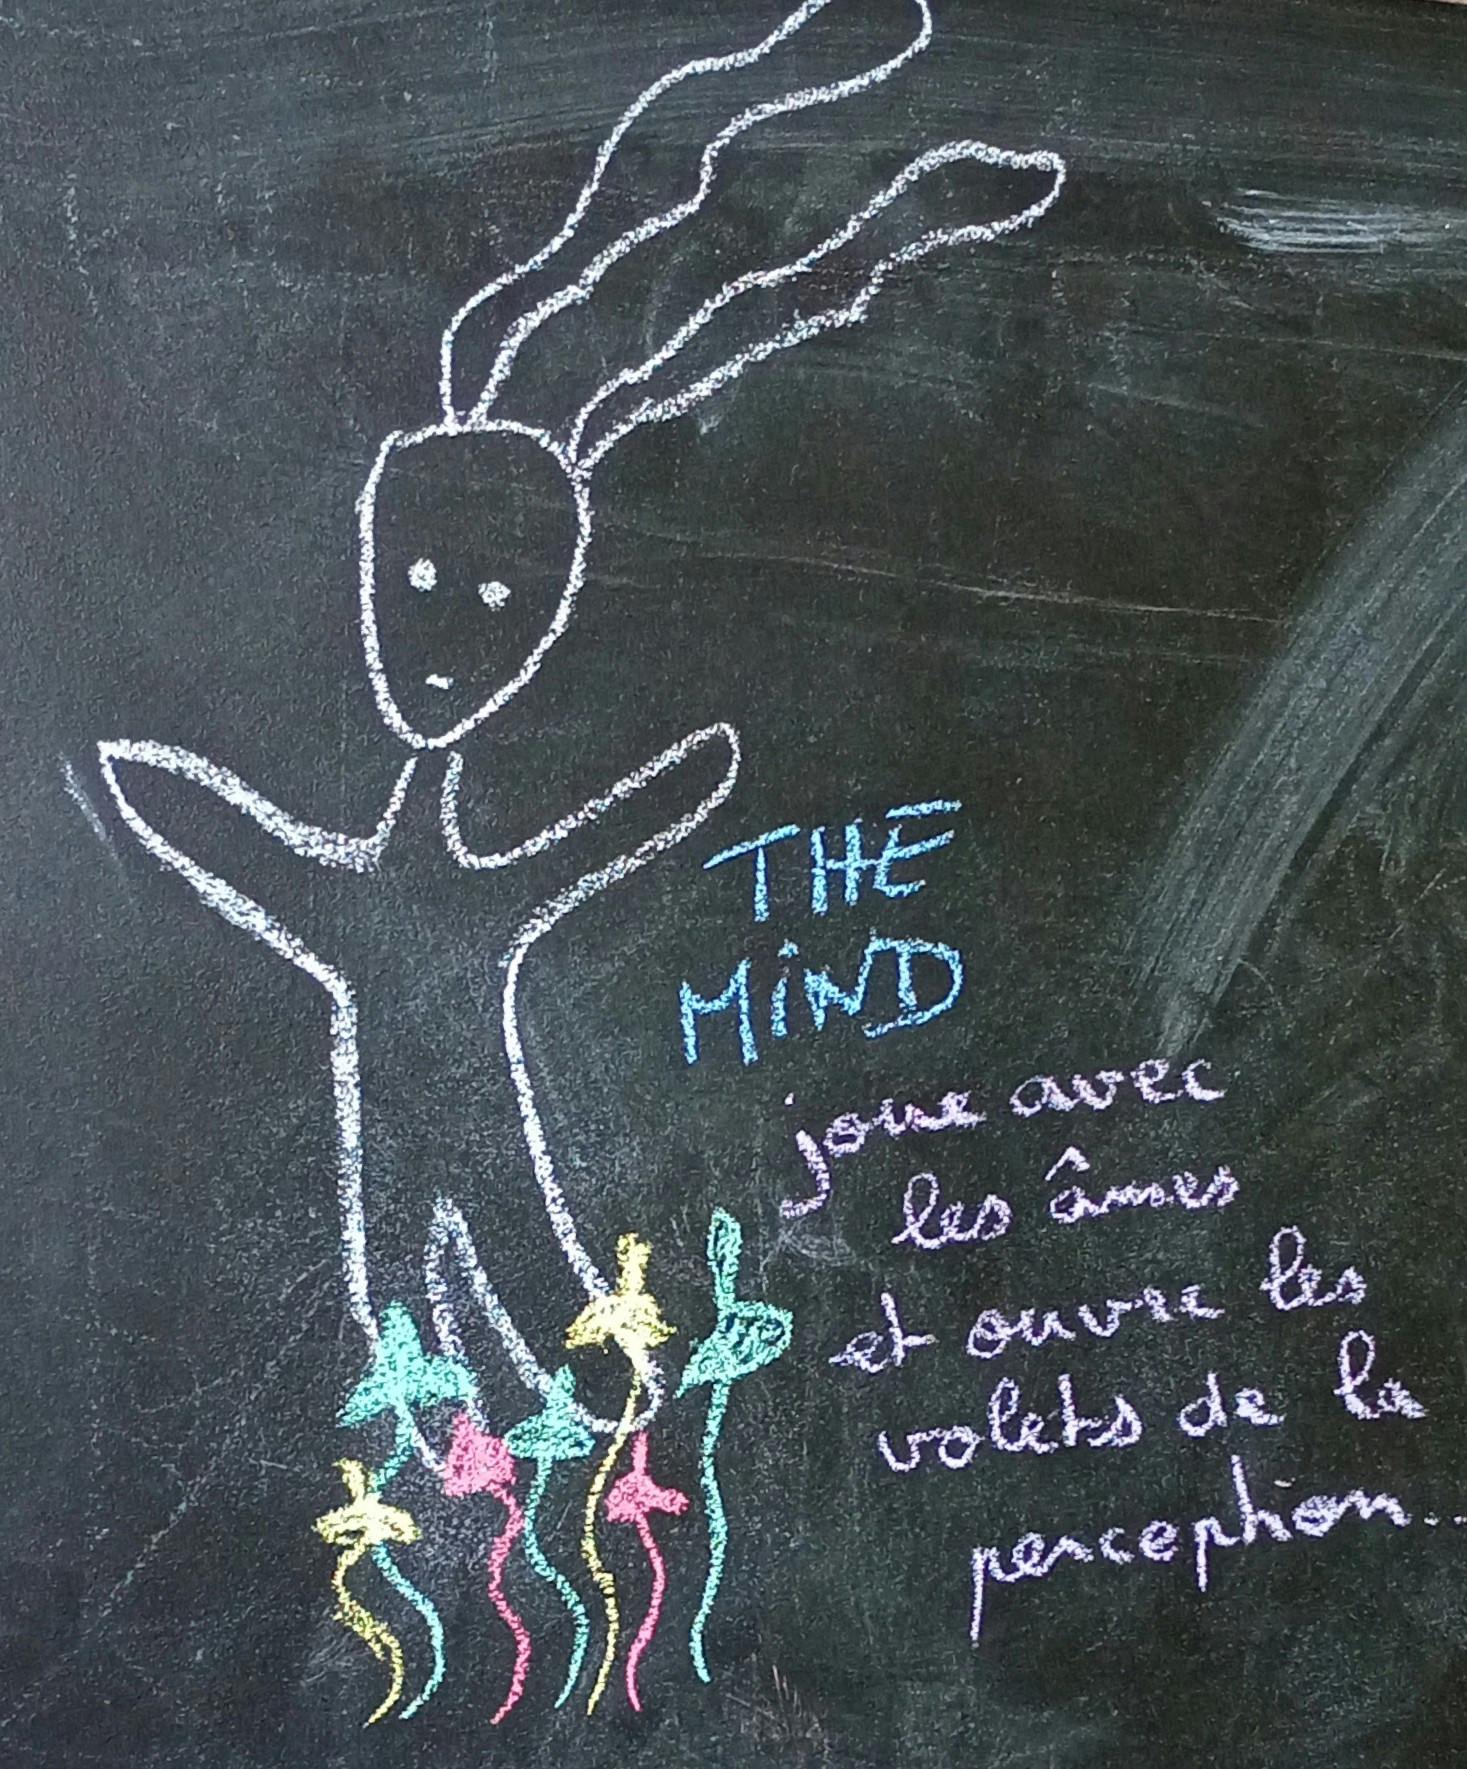 THE
MiND
joue avec
les âmes
et ouvre les
volets de la
perception...